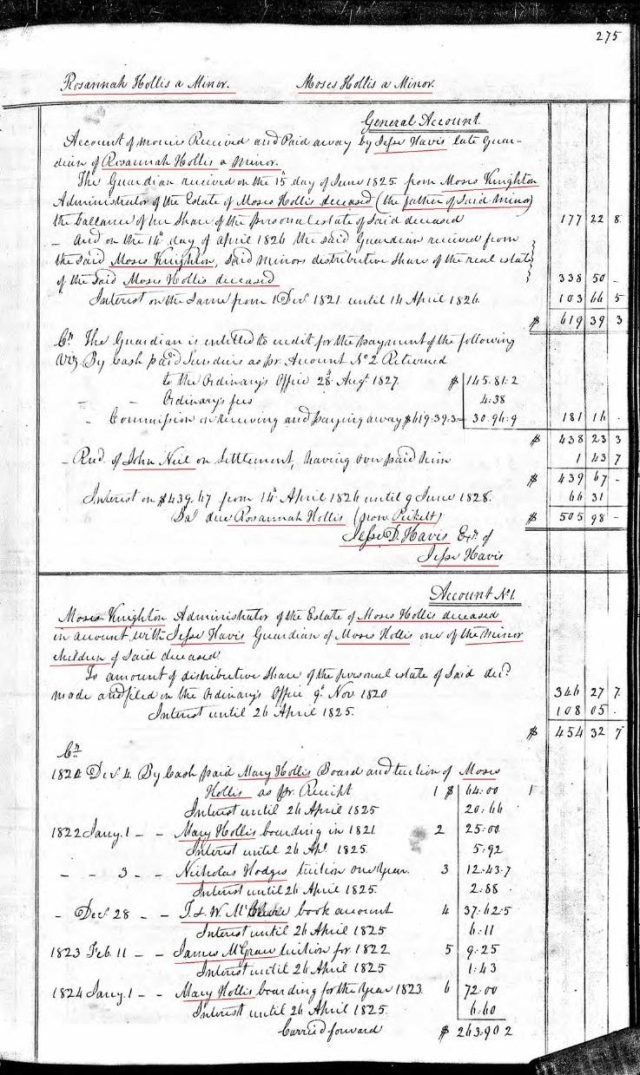 275
Rosannah Hollis a Minor. Moses Hollis a Minor.
General Account
Account of monies Received and Paid away by Jesse Havis late Guar-
dian of Rosannah Hollis a Minor.
The Guardian received on the 15th day of June 1825 from Moses Knighton
Administrator of the Estate of Moses Hollis deceased (the father of Said Minor)
the ballance of her Share of the personal estate of Said deceased 177 22 8
- And on the 14th day of april 1826 the said Guardian received from
the said Moses Knighton, Said minors distributive Share of the real estate
of the Said Moses Hollis deceased 338 50 -
Interest on the Same from 1 Decr 1821 until 14 April 1826 103 66 5
$ 619 39 3
Cr. The Guardian is entitled to credit for the payment of the following
Viz By Cash paid Sundries as pr Account No 2 Returned
to the Ordinary's Office 28th Augt 1827. $ 145.81.2
" " Ordinary's fees 4.38
" Commission on receiving and paying away $619.39.3 - 30.96.9 181 16 -
$ 438 23 3
- Recd. of John Neil on Settlement, having over paid him 1 43 7
$ 439 67 -
Interest on $439.67 from 14th April 1826 until 9 June 1828. 66 31
Bal due Rosannah Hollis (now Pickett) $ 505 98 -
Jesse D. Havis Exr of
Jesse Havis
Account No 1.
Moses Knighton Administrator of the Estate of Moses Hollis deceased
in account with Jesse Havis Guardian of Moses Hollis one of the Minor
children of Said deceased
To amount of distributive Share of the personal estate of Said decd
made and filed in the Ordinary's Office 9th Nov 1820 346 27 7
Interest until 26 April 1825. 108 05 -
$ 454 32 7
Cr
1821 Decr 4 By Cash paid Mary Hollis Board and tuition of Moses
Hollis as pr Receipt 1 $ 64.00
Interest until 26 April 1825 20.66
1822 Jany. 1 - - Mary Hollis boarding in 1821 2 25.00
Interest until 26 Apl 1825. 5.92
- - 3 - - Nicholas Hodges tuition one Year. 3 12.43.7
Interest until 26 April 1825. 2.88
- Decr 28 - - book account 4 37.62.5
Interest until 26 April 1825 6.11
1823 Feb 11 - - James McGraw tuition for 1822 5 9.25
Interest until 26 April 1825 1.43
1824 Jany. 1 - - Mary Hollis boarding for the Year 1823 6 72.00
Interest until 26 April 1825. 6.60
Carried forward $ 263.90 2